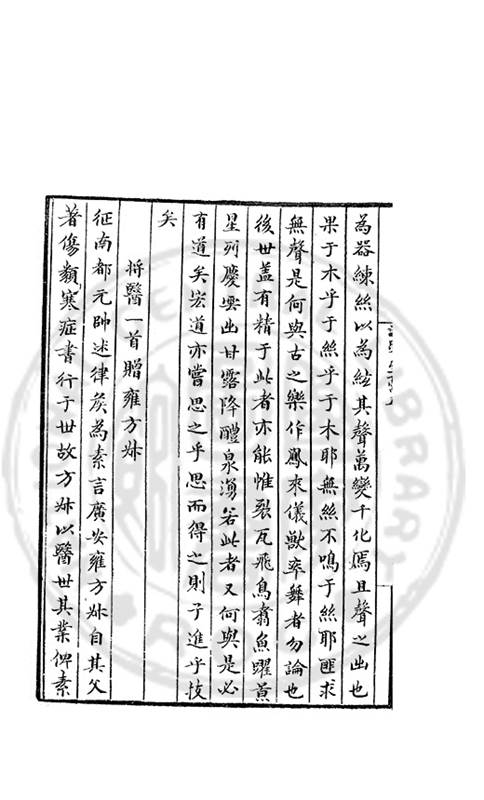 為器練絲以為絃其聲萬變千化焉且聲之出也
果于木乎于絲乎于木耶無絲不鳴于絲耶匪求
無聲是何與古之樂作鳳來儀獸率舞者勿論也
後世盖有精于此者亦能惟裂瓦飛鳥翕魚躍景
星列慶雲出甘露降醴泉湧若此者又何與是必
有道矣宏道亦嘗思之乎思而得之則子進乎技
矣
将醫一首贈雍方叔
征南都元帥述律矦為素言廣安雍方叔自其父
著傷寒類症書行于世故方叔以醫世其業俾素